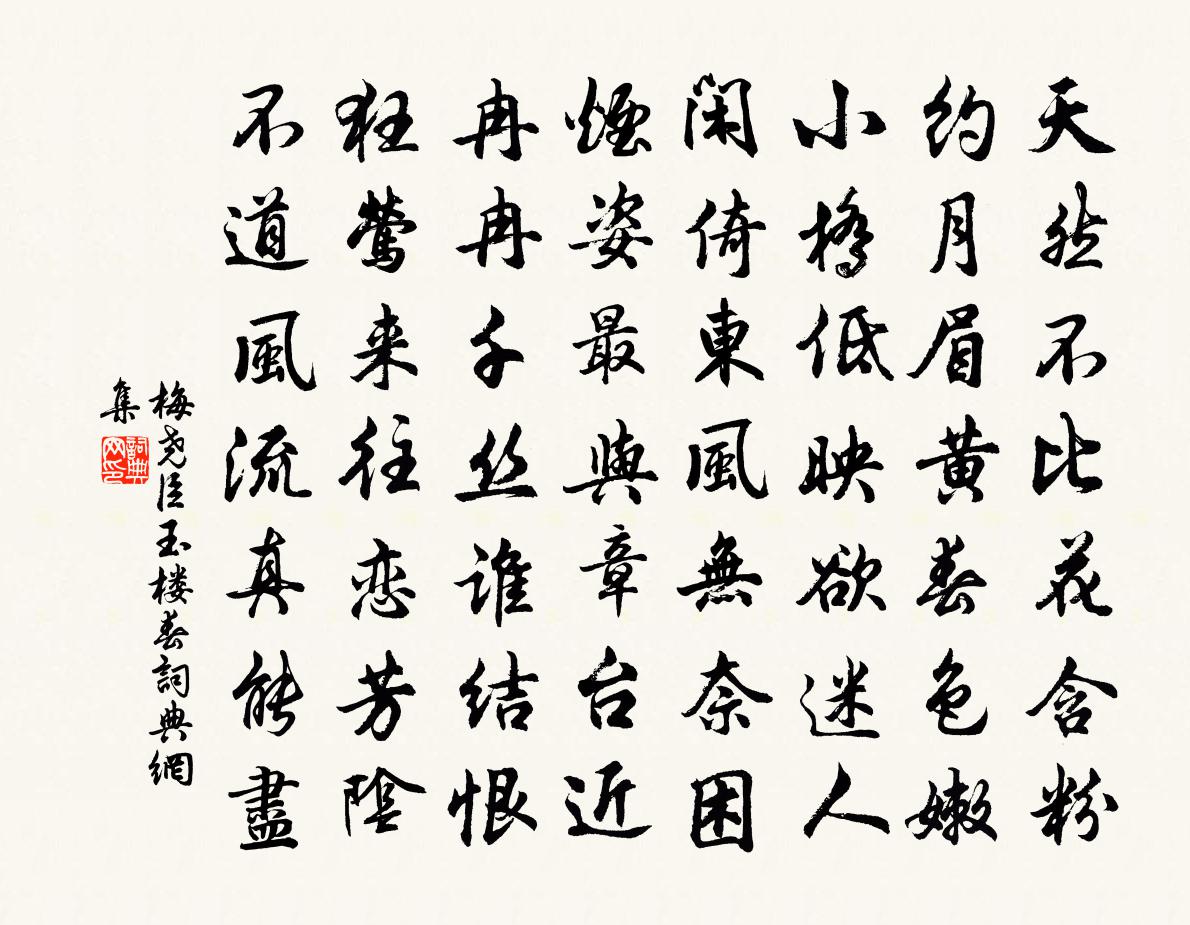 天然不比花含粉
約月眉黄春色嫩
小橋低映欲迷人
閑倚東風無奈困
煙姿最與章台近
冉冉千丝誰結恨
狂鶯来往恋芳陰
不道風流真能盡
梅尧臣玉楼春詞典網
集
詞典
网印